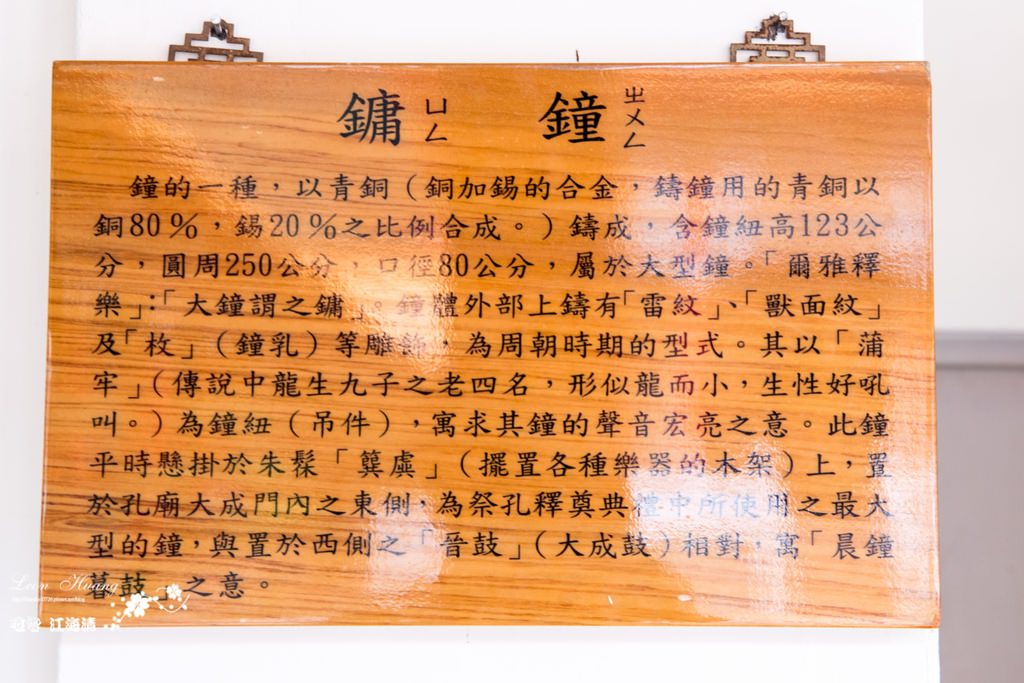 鏞 ㄩㄥ 鐘 ㄓㄨㄥ
鐘的一種，以青銅（銅加錫的合金，鑄鐘用的青銅以
銅80％，錫20％之比例合成。）鑄成，含鐘紐高123公
分，圓周250公分，口徑80公分，屬於大型鐘。「爾雅釋
樂」：「大鐘謂之鏞」。鐘體外部上鑄有「雷紋」、「獸面紋」
及「枚」（鐘乳）等雕飾，為周朝時期的型式。其以「蒲
牢」（傳說中龍生九子之老四名，形似龍而小，生性好吼
叫。）為鐘紐（吊件），寓求其鐘的聲音宏亮之意。此鐘
平時懸掛於朱髹「簨虡」（擺置各種樂器的木架）上，置
於孔廟大成門內之東側，為祭孔釋奠典禮中所使用之最大
型的鐘，與置於西側之「晉鼓」（大成鼓）相對，寓「晨鐘
暮鼓」之意。
Leon Huang